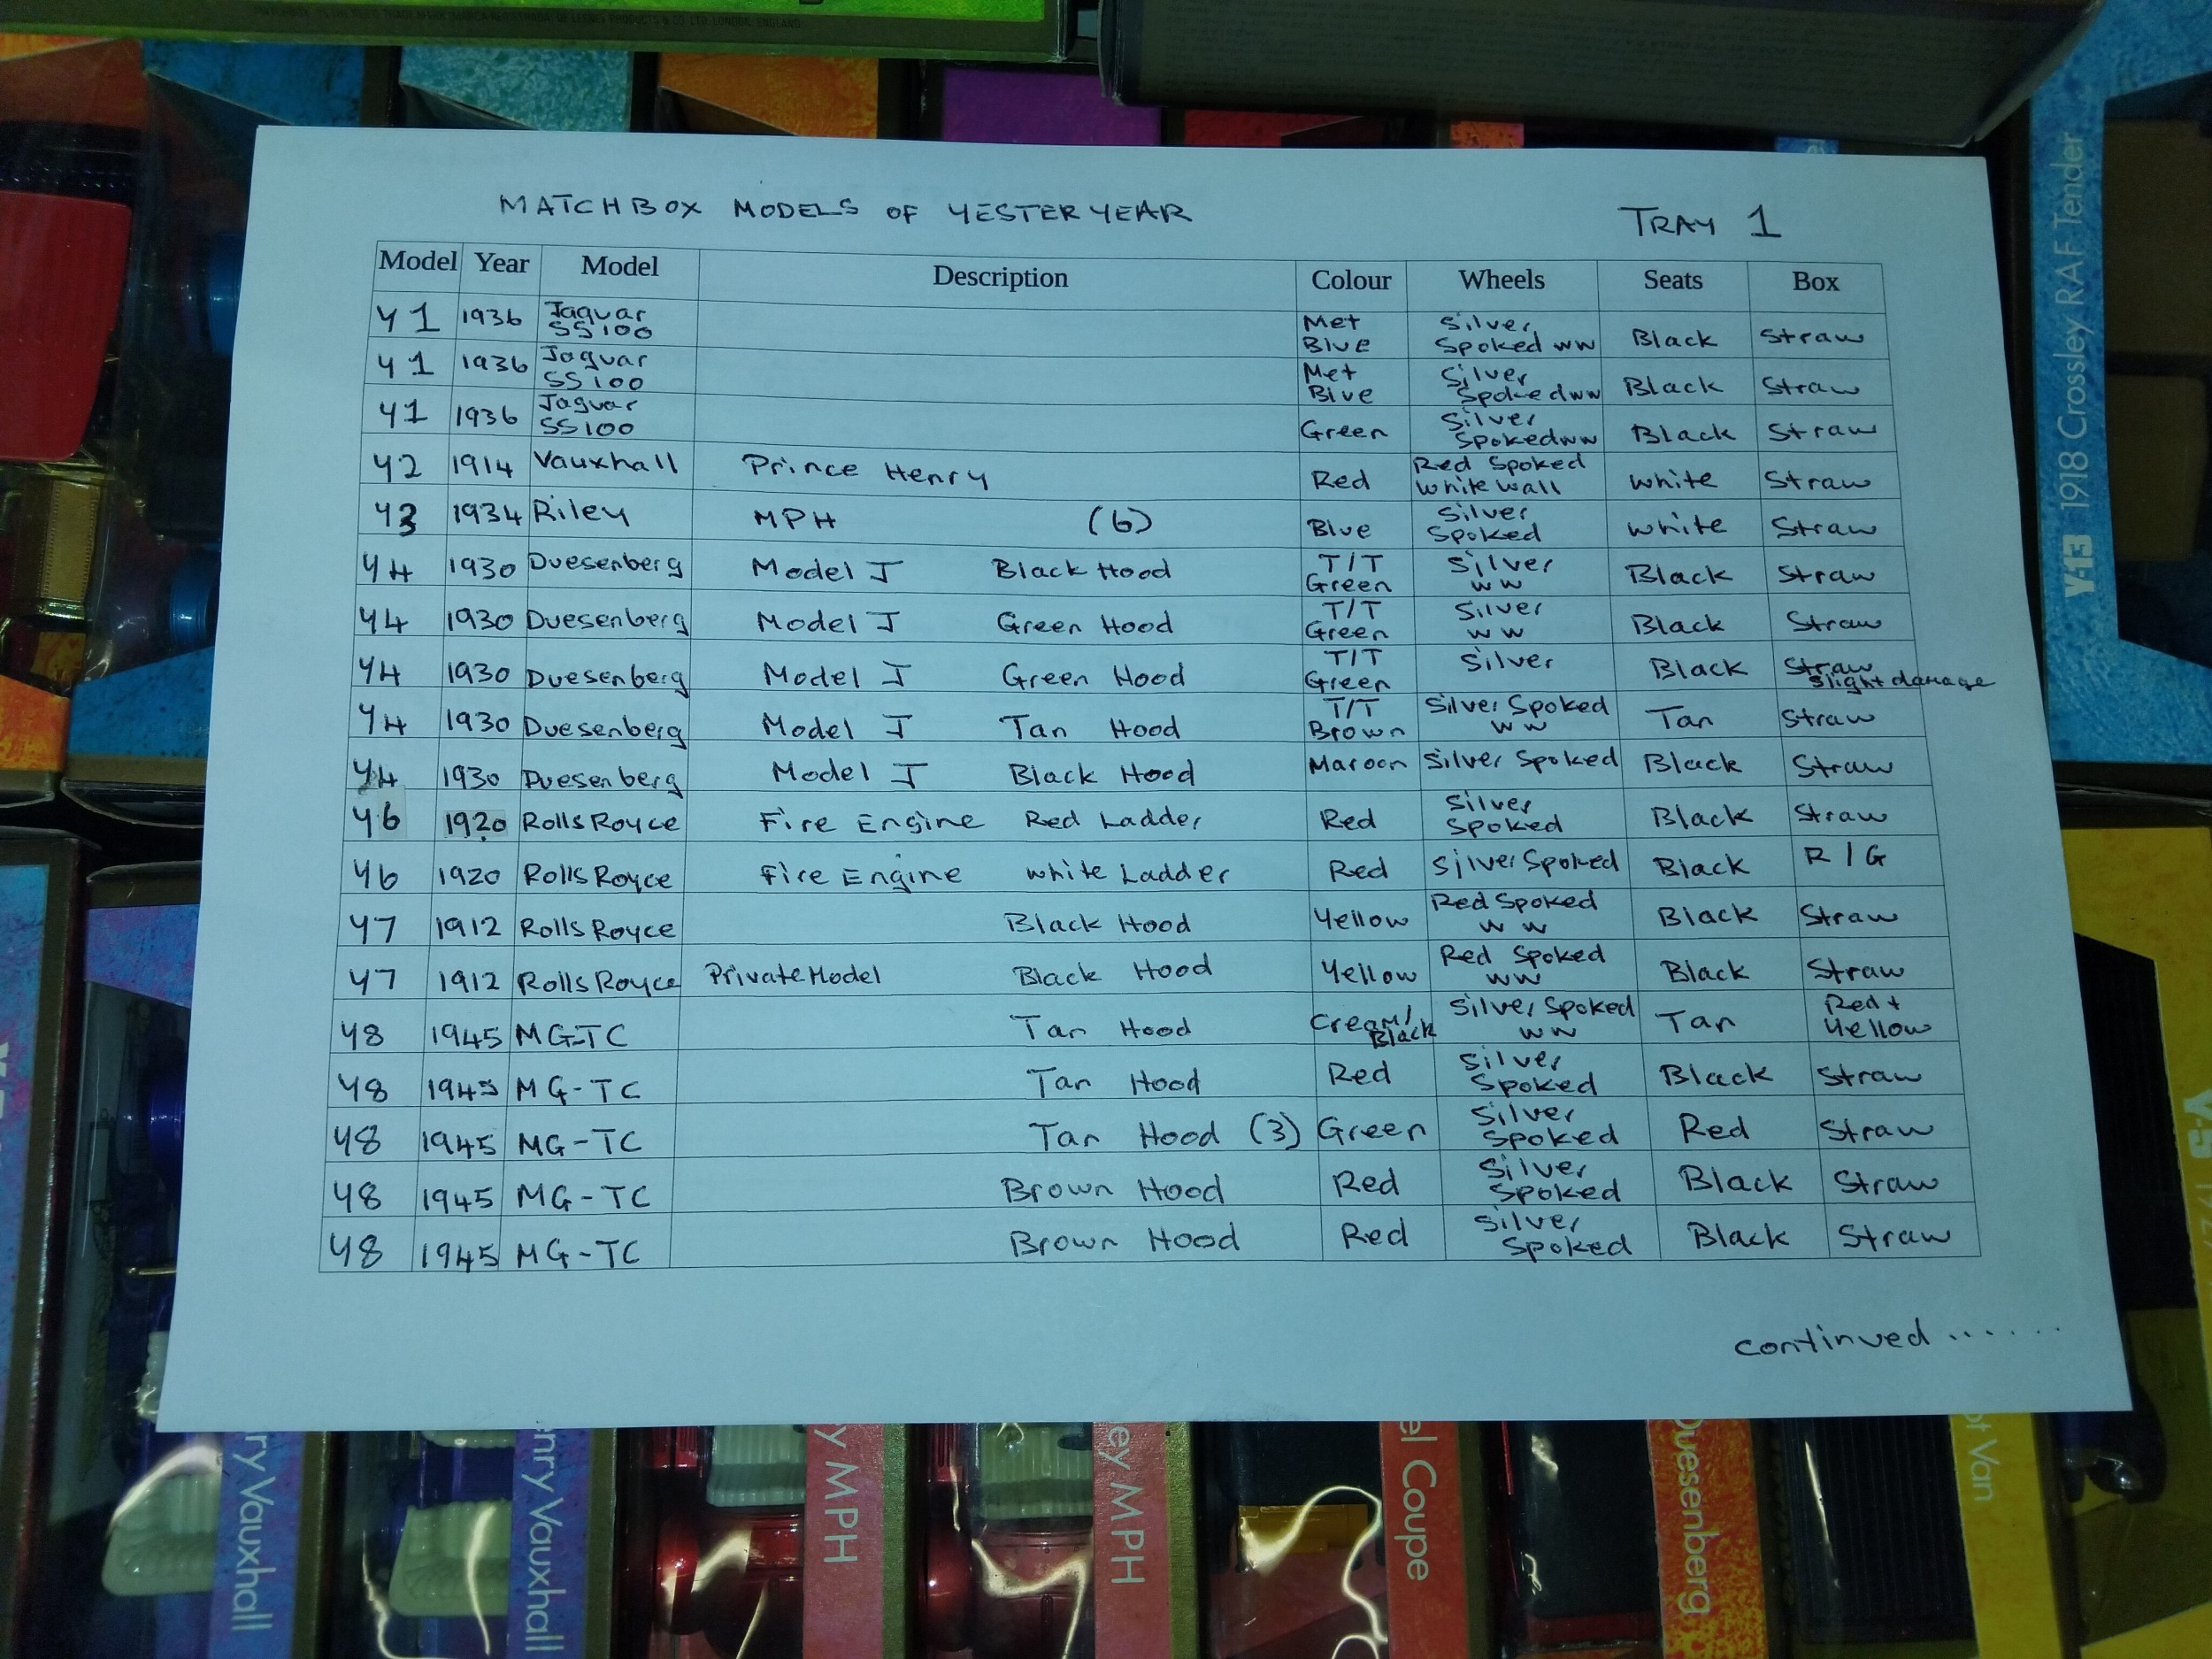 MATCHBOX MODELS OF YESTERYEAR TRAY 1
Model Year Model Description Colour Wheels Seats Box
Y1 1936 Jaguar SS100 Met Blue Silver Spoked WW Black Straw
Y1 1936 Jaguar SS100 Met Blue Silver Spoked WW Black Straw
Y1 1936 Jaguar SS100 Green Silver Spoked WW Black Straw
Y2 1914 Vauxhall Prince Henry Red Red Spoked White Wall White Straw
Y3 1934 Riley MPH (6) Blue Silver Spoked White Straw
Y4 1930 Duesenberg Model J Black Hood T/T Green Silver WW Black Straw
Y4 1930 Duesenberg Model J Green Hood T/T Green Silver WW Black Straw
Y4 1930 Duesenberg Model J Green Hood T/T Green Silver Black Straw Slight damage
Y4 1930 Duesenberg Model J Tan Hood T/T Brown Silver Spoked WW Tan Straw
Y4 1930 Duesenberg Model J Black Hood Maroon Silver Spoked Black Straw
Y6 1920 Rolls Royce Fire Engine Red Ladder Red Silver Spoked Black Straw
Y6 1920 Rolls Royce Fire Engine White Ladder Red Silver Spoked Black R/G
Y7 1912 Rolls Royce Black Hood Yellow Red Spoked WW Black Straw
Y7 1912 Rolls Royce Private Model Black Hood Yellow Red Spoked WW Black Straw
Y8 1945 MG-TC Tan Hood Cream/Black Silver Spoked WW Tan Red + Yellow
Y8 1945 MG-TC Tan Hood Red Silver Spoked Black Straw
Y8 1945 MG-TC Tan Hood (3) Green Silver Spoked Red Straw
Y8 1945 MG-TC Brown Hood Red Silver Spoked Black Straw
Y8 1945 MG-TC Brown Hood Red Silver Spoked Black Straw
continued ......
Y-13 1918 Crossley RAF Tender
ry Vauxhall
enry Vauxhall
y MPH
ey MPH
el Coupe
Duesenberg
ot Van